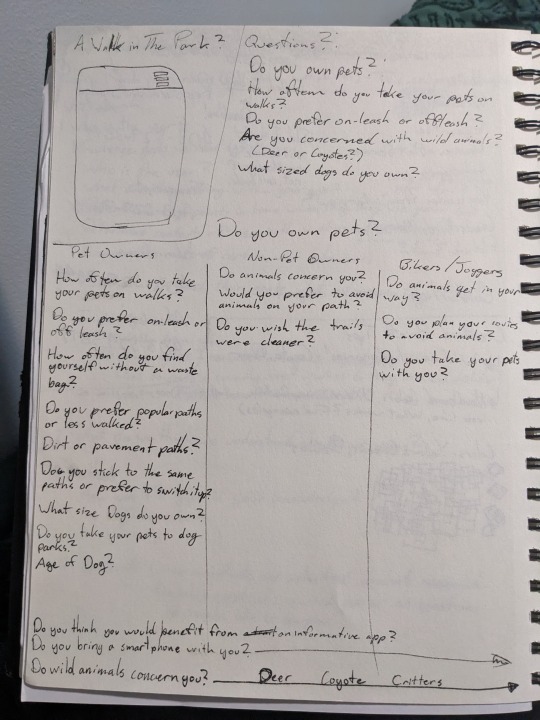 A Walk in The Park?
Questions?:
Do you own pets?
How often do you take your pets on
walks?
Do you prefer on-leash or offleash?
Are you concerned with wild animals?
(Deer or Coyotes?)
What sized dogs do you own?
Do you own pets?
Pet Owners
How often do you take
your pets on walks?
Do you prefer on-leash or
off leash?
How often do you find
yourself without a waste
bag?
Do you prefer popular paths
or less walked?
Dirt or pavement paths?
Dog you stick to the same
paths or prefer to switch it up?
What size Dogs do you own?
Do you take your pets to dog
parks?
Age of Dog?
Non-Pet Owners
Do animals concern you?
Would you prefer to avoid
animals on your path?
Do you wish the trails
were cleaner?
Bikers/Joggers
Do animals get in your
way?
Do you plan your routes
to avoid animals?
Do you take your pets
with you?
Do you think you would benefit from on informative app?
Do you bring a smartphone with you?
Do wild animals concern you? Deer Coyote Critters